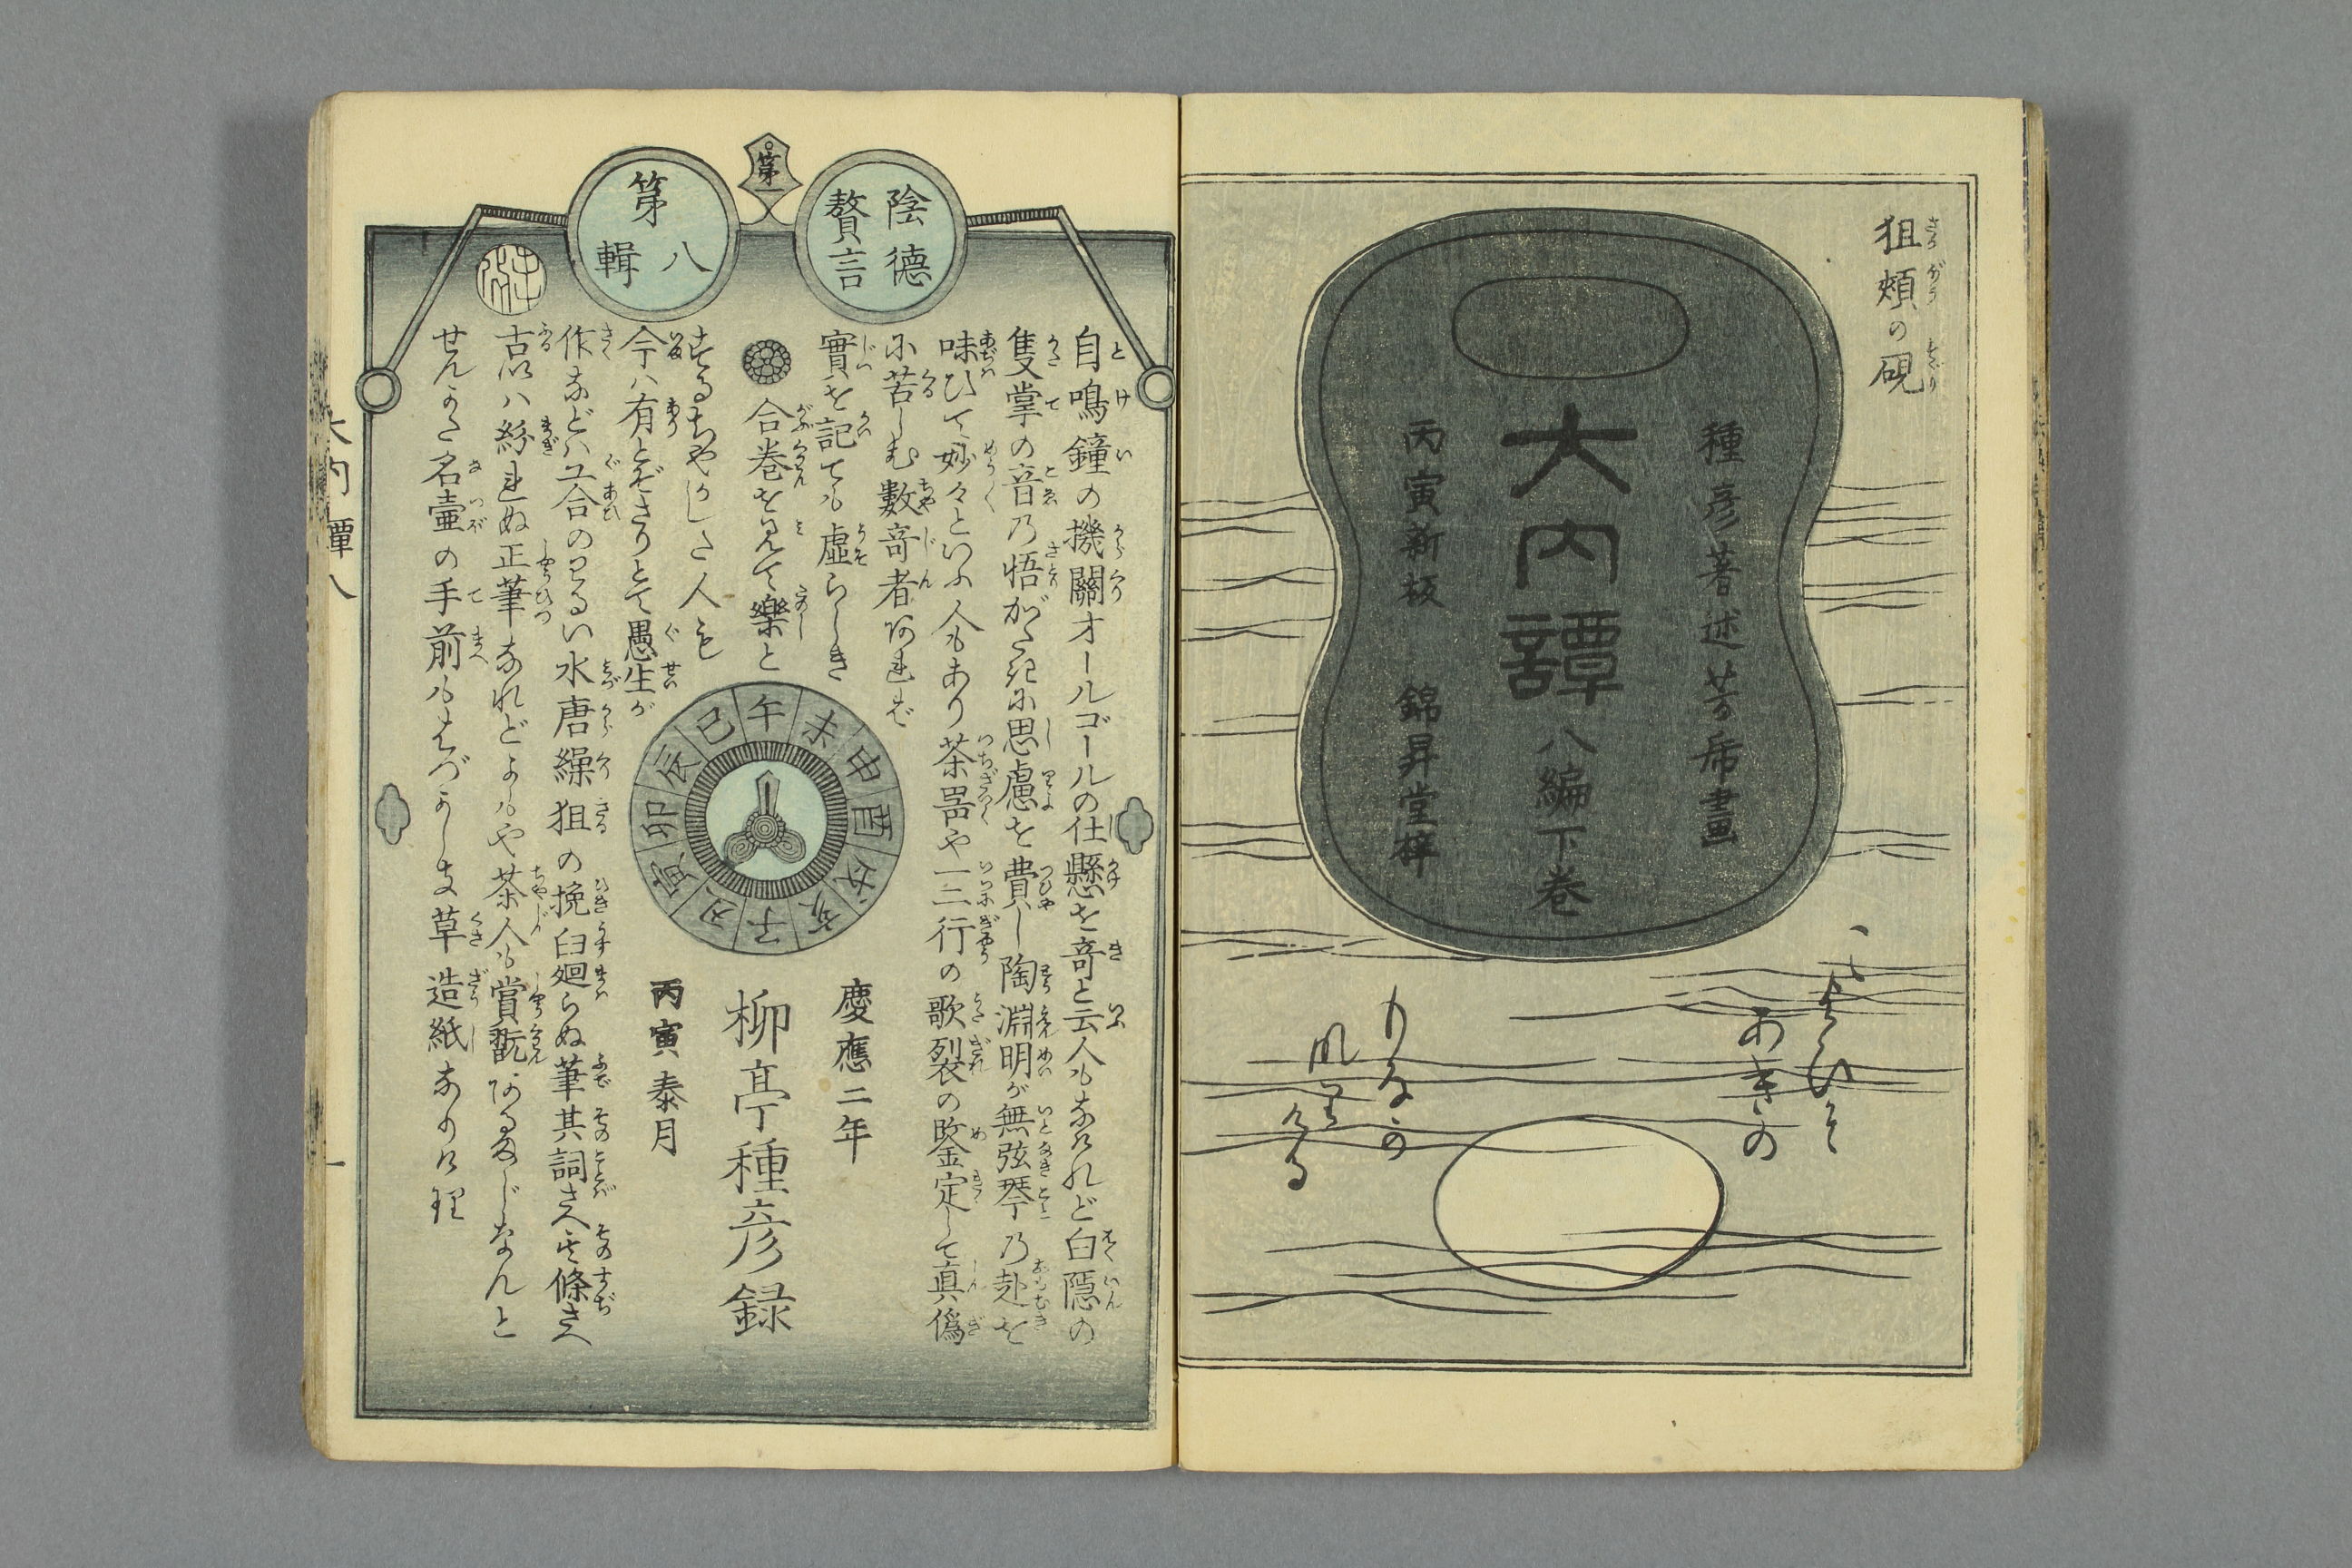 狙頬の硯
種彦著述芳虎畫
大内譚八編下巻
丙寅新板 錦昇堂梓
あきの
陰德
贅言
第一
第八
輯
自鳴鐘の機關オールゴールの仕懸を奇と云人もあれど白隱の
隻掌の音乃悟がたきに思慮を費し陶淵明が無弦琴乃赴を
味ひて妙々といふ人もあり茶噐や一二行の歌裂の鑒定して真偽
に苦しむ數奇者あれば
實を記ても虛らしき
合巻を見て樂と
するちやかした人も
今ハ有とぞさりとて愚生が
作などハ工合のわるい水唐繰狙の挽臼廻らぬ筆其詞さへ其條さへ
古以ハ紛れぬ正筆なれどよもや茶人も賞翫あるまじなんと
せんかた名壷の手前もはづかし支草造紙なりけ理
午
未
申
酉
戌
亥
子
丑
寅
卯
辰
巳
慶應二年
柳亭種彦録
丙寅泰月
大内譚八
一